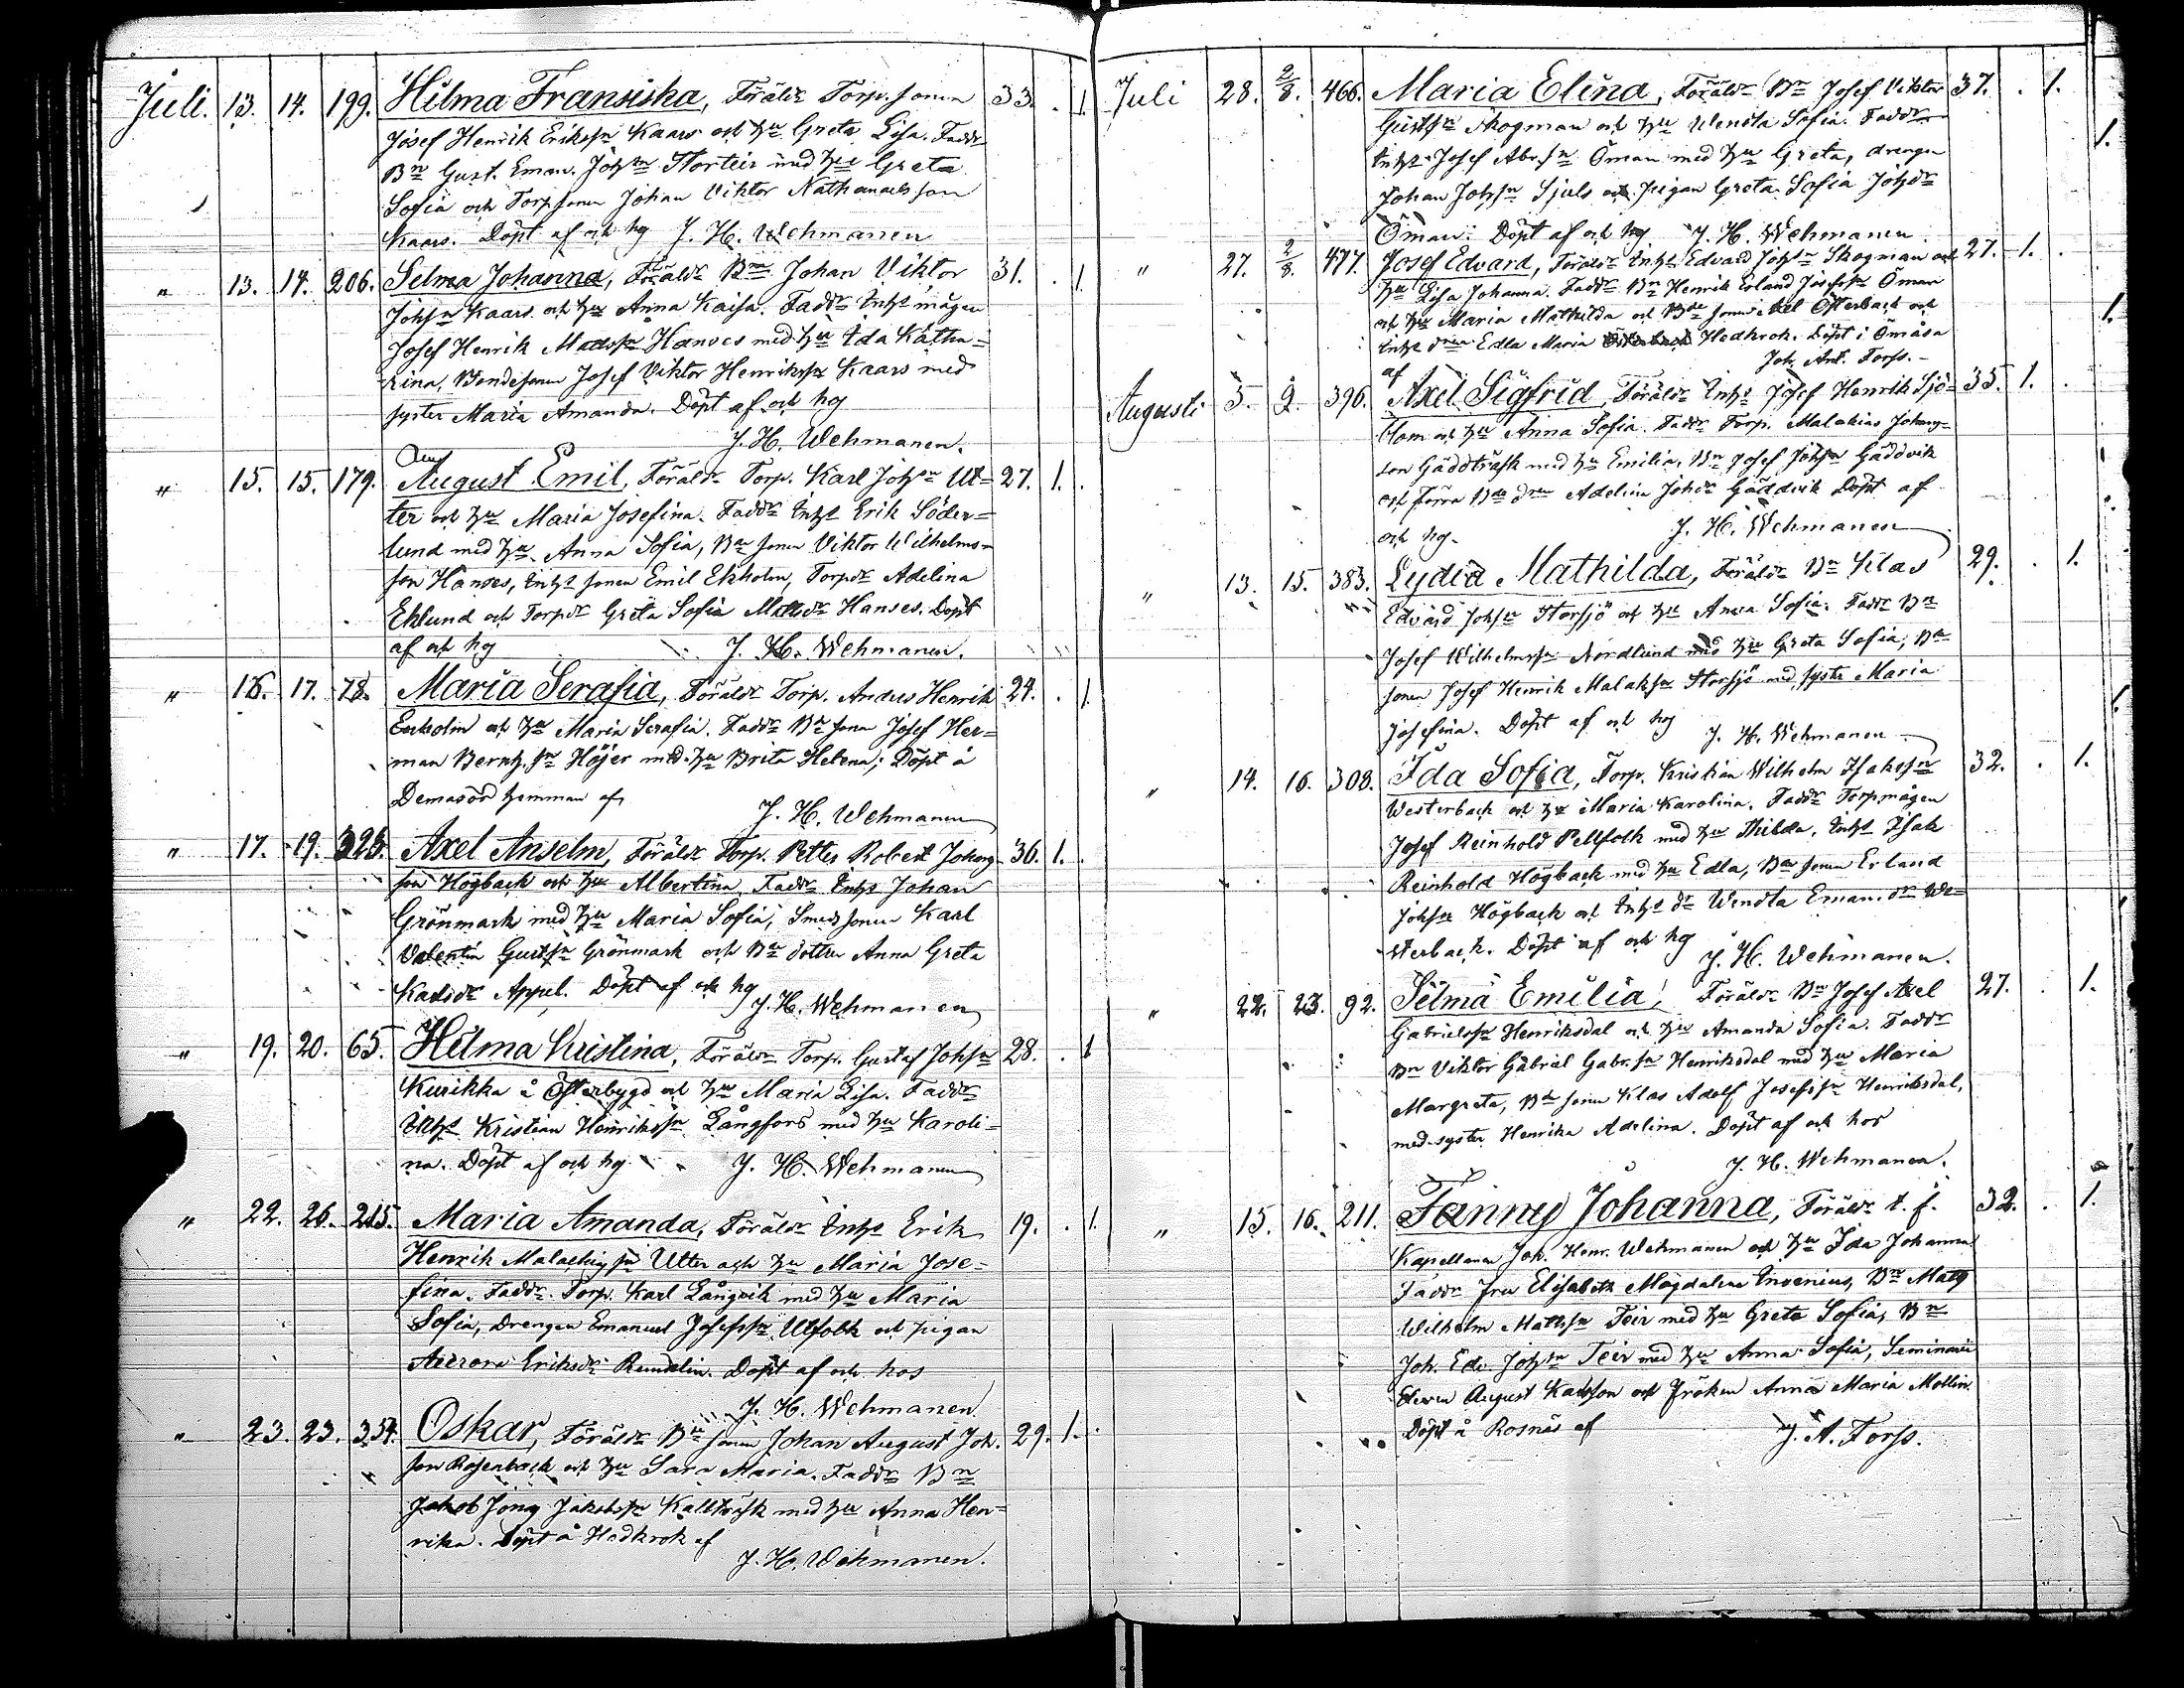 Juli. 13. 14. 199. Hilma Fransiska, Föräldr Torp. sonen 33. . 1.
Josef Henrik Erikssn Kaars och hu Greta Lisa. Faddr
Bn Gust. Eman. Johsn Storteir med hu Greta
Sofia och Torpsonen Johan Viktor Nathanaelsson
Kaars. Döpt af och hg J. H. Wehmanen
" 13. 14. 206. Selma Johanna, Föräldr Bn Johan Viktor 31. . 1.
Johsn Kaars och hu Anna Kaisa. Faddr Inhs mågen
Josef Henrik Matssn Hanses med hu Ida Katha=
rina, Bondesonen Josef Viktor Henrikssn Kaars med
syster Maria Amanda. Döpt af och hg
J. H. Wehmanen.
" 15. 15. 179. August Emil, Föräldr Torp. Karl Johsn Ut= 27. 1.
ter och hu Maria Josefina. Faddr Inhs Erik Söder=
lund med hu Anna Sofia, Bn sonen Viktor Wilhelms=
son Hanses, Inhs sonen Emil Ekholm, Torpdr Adelina
Eklund och Torpdr Greta Sofia Mattsdr Hanses. Döpt
af och hg J. H. Wehmanen.
" 16. 17. 78. Maria Serafia, Föräldr Torp. Anders Henrik 24. . 1.
Enholm och hu Maria Serafia. Faddr Bn sonen Josef Her=
man Bernh.sn Höjer med hu Brita Helena; Döpt å
Demasöö hemman af
J. H. Wehmanen
" 17. 19. 325. Axel Anselm, Föräldr Torp. Petter Robert Johans 36. 1.
son Högback och hu Albertina, Faddr Inhs Johan
Grönmark med hu Maria Sofia, Smedsonen Karl
Valentin Gustsn Grönmark och Bn dotter Anna Greta
Karlsdr Appel. Döpt af och hg
J. H. Wehmanen
" 19. 20. 65. Hilma Kristina, Föräldr Torp. Gustaf Johsn 28. . 1
Kurikka å Österbygd och hu Maria Lisa. Faddr
Inhs Kristian Henrikssn Långfors med hu Karoli=
na. Döpt af och hg J. H. Wehmanen
" 22. 26. 215. Maria Amanda, Föräldr Inhs Erik 19. . 1.
Henrik Malachissn Utter och hu Maria Jose=
fina. Faddr Torp. Karl Långvik med hu Maria
Sofia, Drengen Emanuel Josefssn Ulfolk och pigan
Aurora Eriksdr Rundelin. Döpt af och hos
J. H. Wehmanen.
" 23. 23. 354. Oskar, Föräldr Bn sonen Johan August Joh. 29. 1.
son Rosenback och hu Sara Maria. Faddr Bn
Jakob Jöns Jakobssn Kallträsk med hu Anna Hen=
rika. Döpt å Hedkrok af
J. H. Wehmanen.
Juli 28. 2/8. 466. Maria Elina, Föräldr Bn Josef Viktor 37. . 1.
Gustsn Skogman och hu Wendla Sofia. Faddr
Inhs Josef Abr.sn Öman med hu Greta, drengen
Johan Johsn Sjuls och pigan Greta Sofia Johsdr
Öman. Döpt af och hg J. H. Wehmanen.
" 27. 2/8. 477. Josef Edvard, Föräldr Inhs Edvard Johsn Skogman och 27. 1.
hu Lisa Johanna. Faddr Bn Henrik Erland Josefssn Öman
och hu Maria Mathilda och Bde sonen Axel Österback och
Inhs dren Edla Maria Hedkrok. Döpt i Ömåsa
af Joh. Ant. Forss.
Augusti 5. 9. 396. Axel Sigfrid, Föräldr Inhs Josef Henrik Sjö= 35. 1.
blom och hu Anna Sofia. Faddr Torp. Malakias Johans=
son Gäddträsk med hu Emilia, Bn Josef Johsn Gäddvik
och förra Bde dren Adelina Johsdr Gäddvik Döpt af
och hg. J. H. Wehmanen
" 13. 15. 383. Lydia Mathilda, Föräldr Bn Klas 29. . 1.
Edvard Johsn Storsjö och hu Anna Sofia. Faddr Bn
Josef Wilhelmssn Nordlund med hu Greta Sofia, Bn
sonen Josef Henrik Malakssn Storsjö med syster Maria
Josefina. Döpt af och hg J. H. Wehmanen
" 14. 16. 308. Ida Sofia, Torp. Kristian Wilhelm Isakssn 32. . 1.
Westerback och hu Maria Karolina. Faddr Torpmågen
Josef Reinhold Pellfolk med hu Hilda, Inhs Isak
Reinhold Högback med hu Edla, Bn sonen Erland
Johsn Högback och Inhs dr Wendla Eman.dr We=
sterback. Döpt af och hg
J. H. Wehmanen.
" 22. 23. 92. Selma Emilia, Föräldr Bn Josef Axel 27. . 1.
Gabrielssn Henriksdal och hu Amanda Sofia. Faddr
Bn Viktor Gabriel Gabr.sn Henriksdal med hu Maria
Margreta, Bn sonen Klas Adolf Josefssn Henriksdal,
med syster Henrika Adelina. Döpt af och hos
J. H. Wehmanen.
" 15. 16. 211. Fanny Johanna, Föräldr t. f. 32. . 1.
Kapellanen Joh. Henr. Wehmanen och hu Ida Johanna
Faddr fru Elisabeth Magdalena Invenius, Bn Mats
Wilhelm Mattssn Teir med hu Greta Sofia, Bn
Joh. Edv. Johsn Teir med hu Anna Sofia, Seminarii
Eleven August Karlsson och Fröken Anna Maria Mollin.
Döpt å Rosnäs af J. A. Forss.